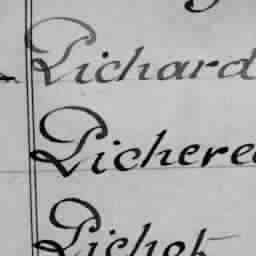 Pichard
Pichere
Pichot